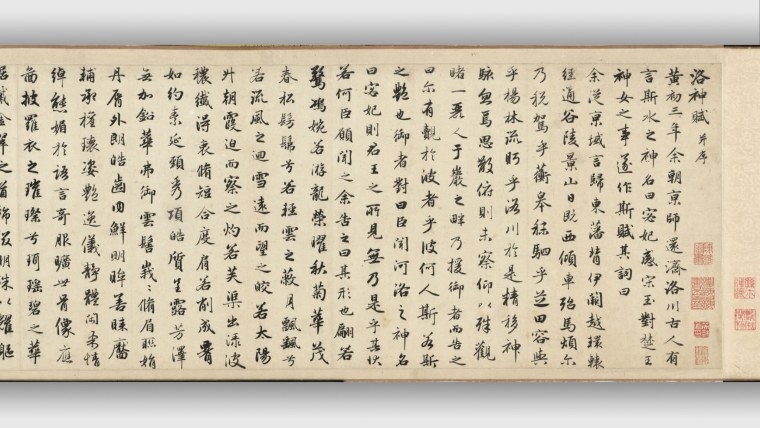 洛神賦 并序
黃初三年余朝京師還濟洛川古人有
言斯水之神名曰宓妃感宋玉對楚王
神女之事遂作斯賦其詞曰
余從京域言歸東藩背伊闕越轘轅
經通谷陵景山日既西傾車殆馬煩尔
乃稅駕乎蘅皋秣駟乎芝田容與
乎楊林流盼乎洛川於是精移神
駭忽焉思散俯則未察仰以殊觀
睹一麗人于巖之畔乃援御者而告之
曰尔有覿於彼者乎彼何人斯若斯
之艷也御者對曰臣聞河洛之神名
曰宓妃則君王之所見無乃是乎其狀
若何臣願聞之余告之曰其形也翩若
驚鴻婉若游龍榮曜秋菊華茂
春松髣髴兮若輕雲之蔽月飄飄兮
若流風之迴雪遠而望之皎若太陽
升朝霞迫而察之灼若芙蕖出淥波
穠纖得衷脩短合度肩若削成腰
如約素延頸秀項皓質呈露芳澤
無加鉛華弗御雲髻峩峩脩眉聯娟
丹脣外朗皓齒內鮮明眸善睞靨
輔承權瓌姿艷逸儀靜體閑柔情
綽態媚於語言奇服曠世骨像應
圖披羅衣之璀璨兮珥瑤碧之華
琚戴金翠之首飾綴明珠以耀軀